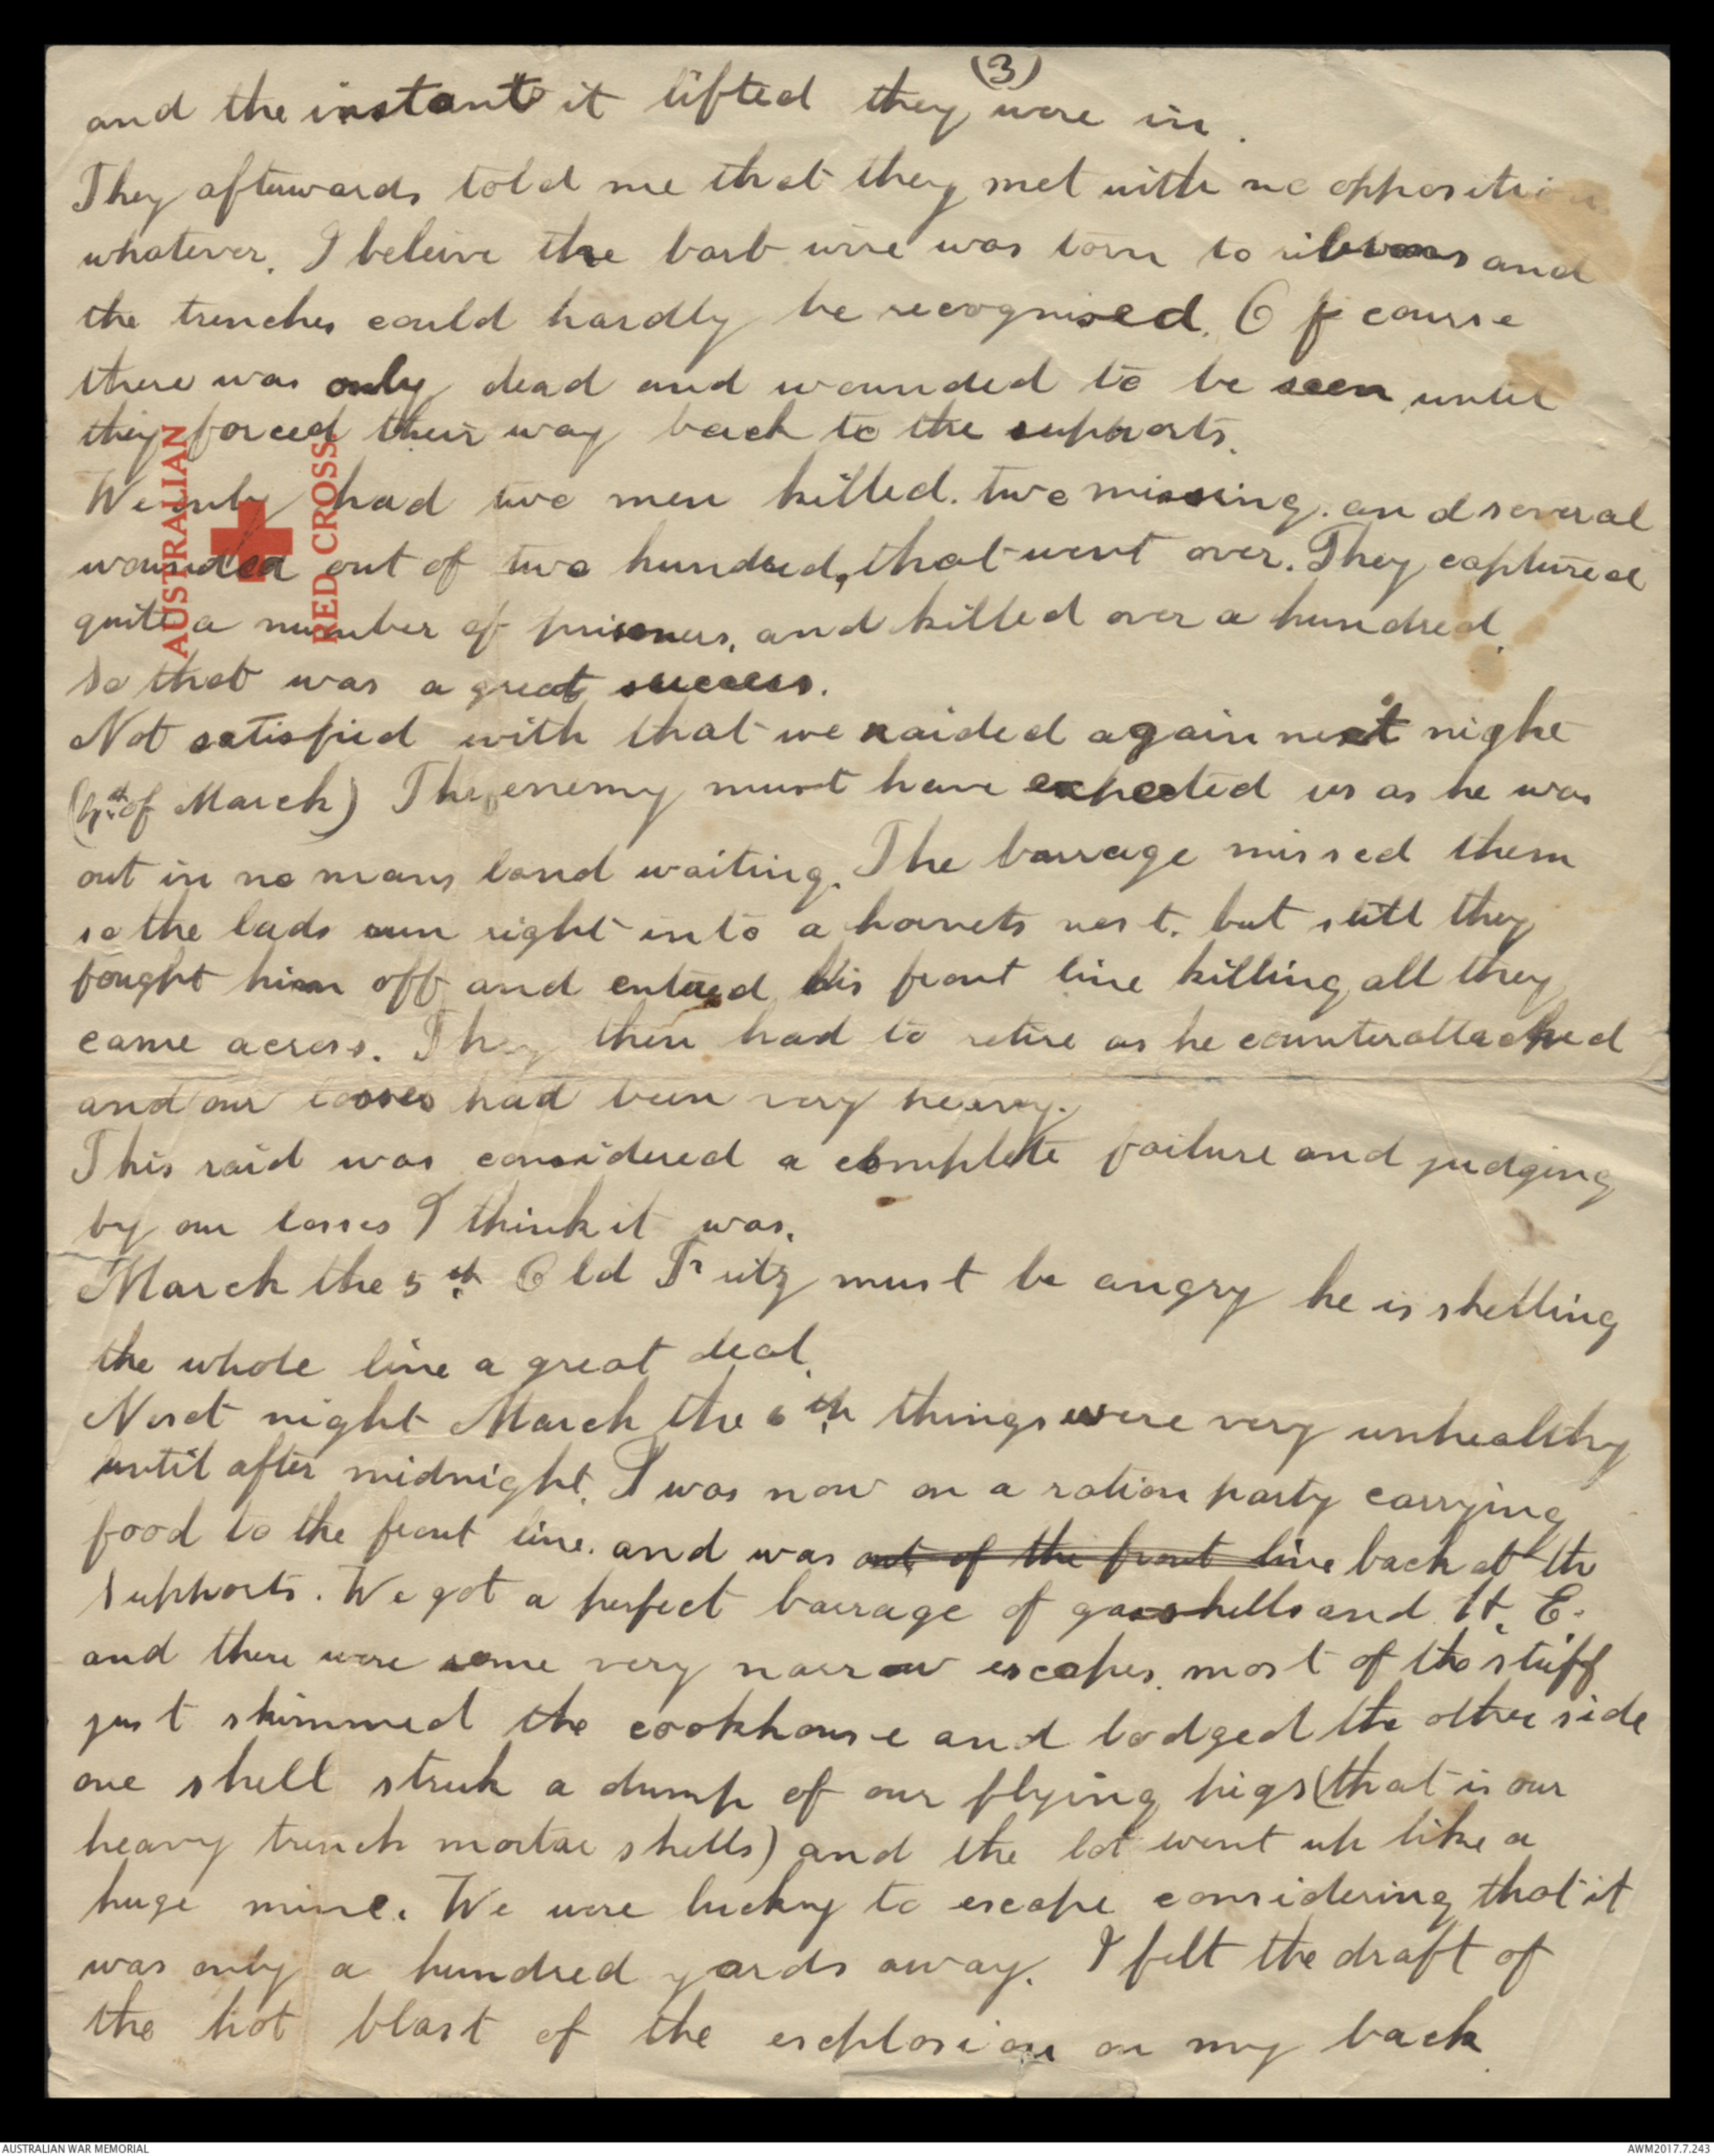 (3)
and the instant it lifted they were in.
They afterwards told me that they met with no opposition
whatever. I beleive the barb wire was torn to ribbons and
the trenches could hardly be recognised. Of course
there was only dead and wounded to be seen until
they forced their way back to the supports.
We only had two men killed. two missing. and several
wounded out of two hundred, that went over. They captured
quite a number of prisoners, and killed over a hundred.
So that was a great success.
Not satisfied with that we raided again next night
(4th of March) The enemy must have expected us as he was
out in no mans land waiting. The barrage missed them
so the lads run right into a hornets nest. but still they
fought him off and entered his front line killing all they
came across. They then had to retire as he counterattacked
and our losses had been very heavy.
This raid was considered a complete failure and judging
by our losses I think it was.
March the 5th. Old Fritz must be angry he is shelling
the whole line a great deal.
Next night March the 6th things were very unhealthy
until after midnight. I was now on a ration party carrying
food to the front line. and was out of the front line back at the
supports. We got a perfect barrage of gas shells and H. E.
and there were some very narrow escapes. most of the stuff
just skimmed the cookhouse and lodged the other side
one shell struk a dump of our flying pigs (that is our
heavy trench mortar shells) and the lot went up like a
huge mine. We were lucky to escape considering that it
was only a hundred yards away. I felt the draft of
the hot blast of the explosion on my back.
AUSTRALIAN
RED CROSS
AUSTRALIAN WAR MEMORIAL
AWM2017.7.243